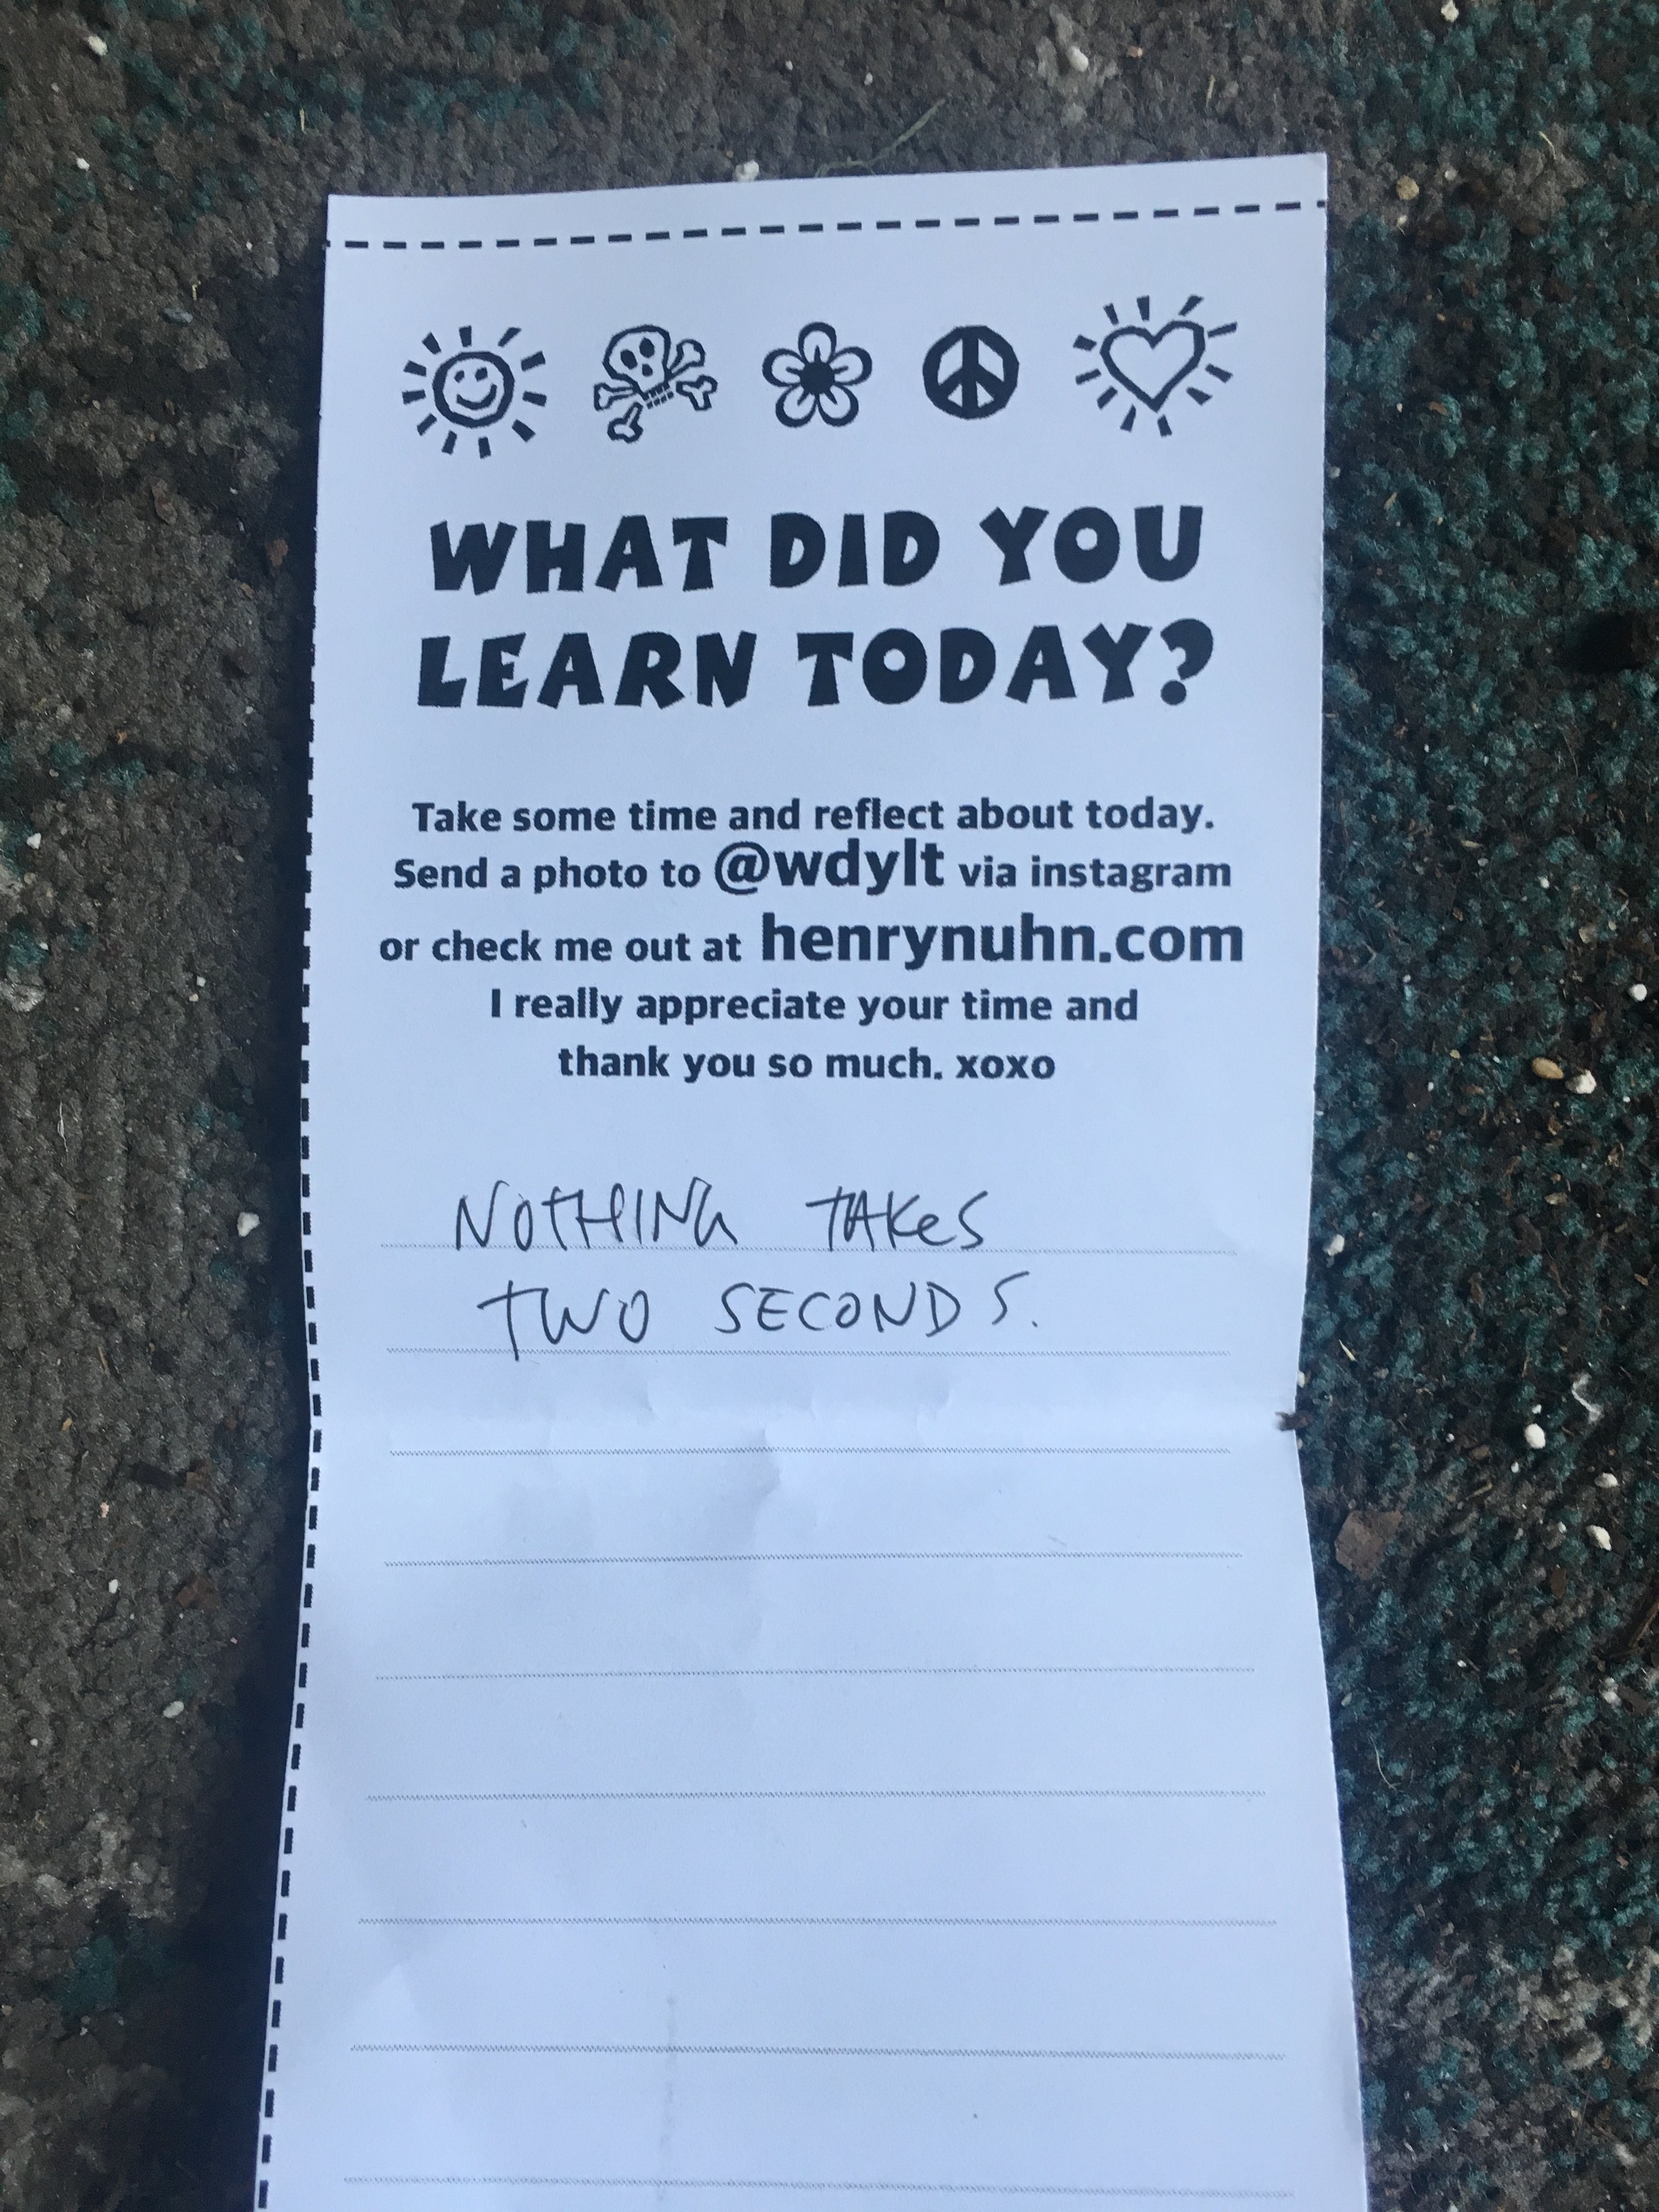 WHAT DID YOU
LEARN TODAY?
Take some time and reflect about today.
Send a photo to @wdylt via instagram
or check me out at henrynuhn.com
I really appreciate your time and
thank you so much. xoxo
NOTHING TAKeS
TWO SECONDS.